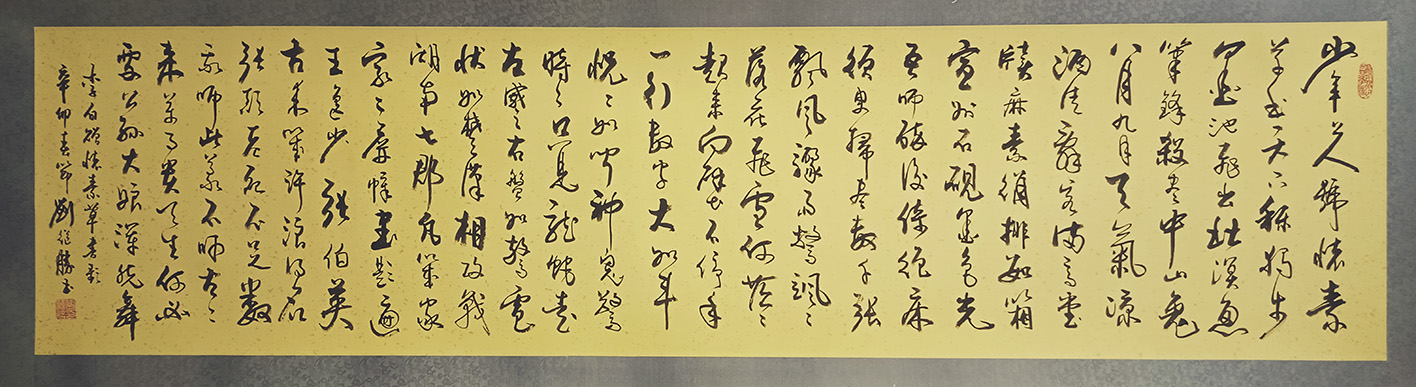 少年上人號懷素
草書天下稱獨步
墨池飛出北溟魚
筆鋒殺盡中山兔
八月九月天氣涼
酒徒辭客滿高堂
牋麻素絹排數箱
宣州石硯墨色光
吾師醉後倚繩床
須臾掃盡數千張
飄風驟雨驚颯々
落花飛雪何茫々
起來向壁不停手
一行數字大如斗
怳々如聞神鬼驚
時々只見龍蛇走
左蹙右盤如驚電
狀如楚漢相攻戰
湖南七郡凡幾家
家々屏幛書題遍
王逸少張伯英
古來幾許浪得名
張顛老死不足數
我師此義不師古々
來萬事貴天生何必
要公孫大娘渾脫舞
李白贈懷素草書歌
辛卯春節劉繼勝書